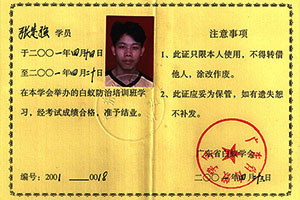 张志强 学员
于二〇〇一年四月十四日
至二〇〇一年四月二十日
在本学会举办的白蚁防治培训班学
习，经考试成绩合格，准予结业。
编号：2001 0018
注意事项
1、此证只限本人使用，不得转借
他人，涂改作废。
2、此证应妥为保管，如有遗失恕
不补发。
广东省白蚁学会
二〇〇一年四月